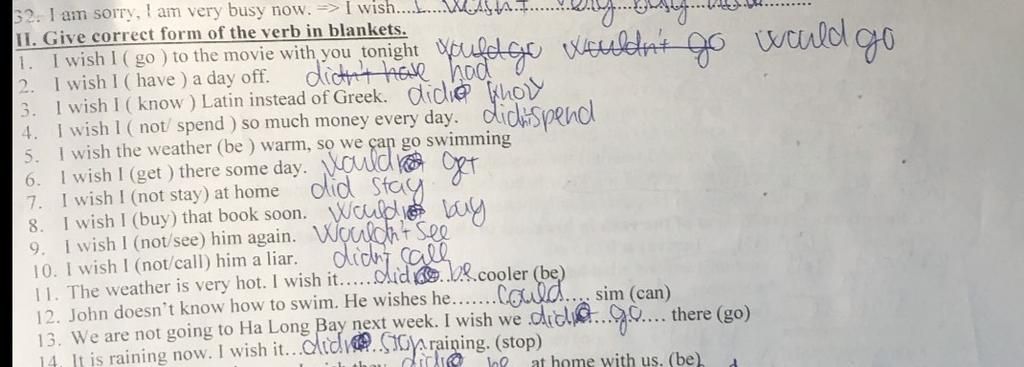 32. I am sorry, I am very busy now. => I wish....I wasn't very busy now...........
II. Give correct form of the verb in blankets.
1. I wish I ( go ) to the movie with you tonight would go wouldn't go would go
2. I wish I ( have ) a day off. didn't have had
3. I wish I ( know ) Latin instead of Greek. did know
4. I wish I ( not/ spend ) so much money every day. didn't spend
5. I wish the weather (be ) warm, so we can go swimming
6. I wish I (get ) there some day. would get
7. I wish I (not stay) at home did stay
8. I wish I (buy) that book soon. would buy
9. I wish I (not/see) him again. Wouldn't see
10. I wish I (not/call) him a liar. didn't call
11. The weather is very hot. I wish it......did be.cooler (be)
12. John doesn't know how to swim. He wishes he.......could.... sim (can)
13. We are not going to Ha Long Bay next week. I wish we .did...go.... there (go)
14. It is raining now. I wish it...did...stop raining. (stop)
did be at home with us. (be)